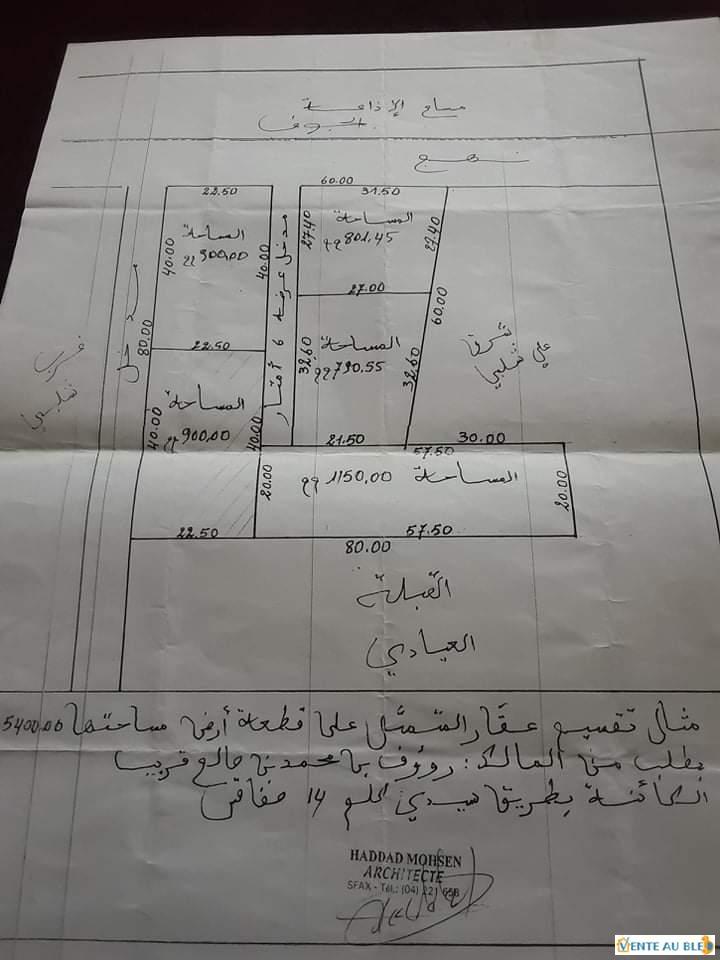 مساح الإذاعة
الجوف
نهج
60.00
22.50
31.50
المساحة
801.45 م م
27.40
27.40
40.00
المساحة
900.00 م م
40.00
مدخل عرضه 6 أمتار
27.00
60.00
80.00
مدخل
غرب
22.50
المساحة
790.55 م م
32.60
32.60
شرق
علي شلبي
المساحة
900.00 م م
40.00
40.00
21.50
30.00
57.50
المساحة 1150,00 م م
20.00
20.00
22.50
57.50
80.00
القبلة
العيادي
مثال تقسيم عقار المتمثل على قطعة أرض مساحتها 5400.00
بطلب من المالك : رؤوف بن محمد بن صالح قريب
الكائنة بطريق سيدي 14 صفاقس
HADDAD MOHSEN
ARCHITECTE
SFAX - Tél.: (04) 221 658
VENTE AU BLED